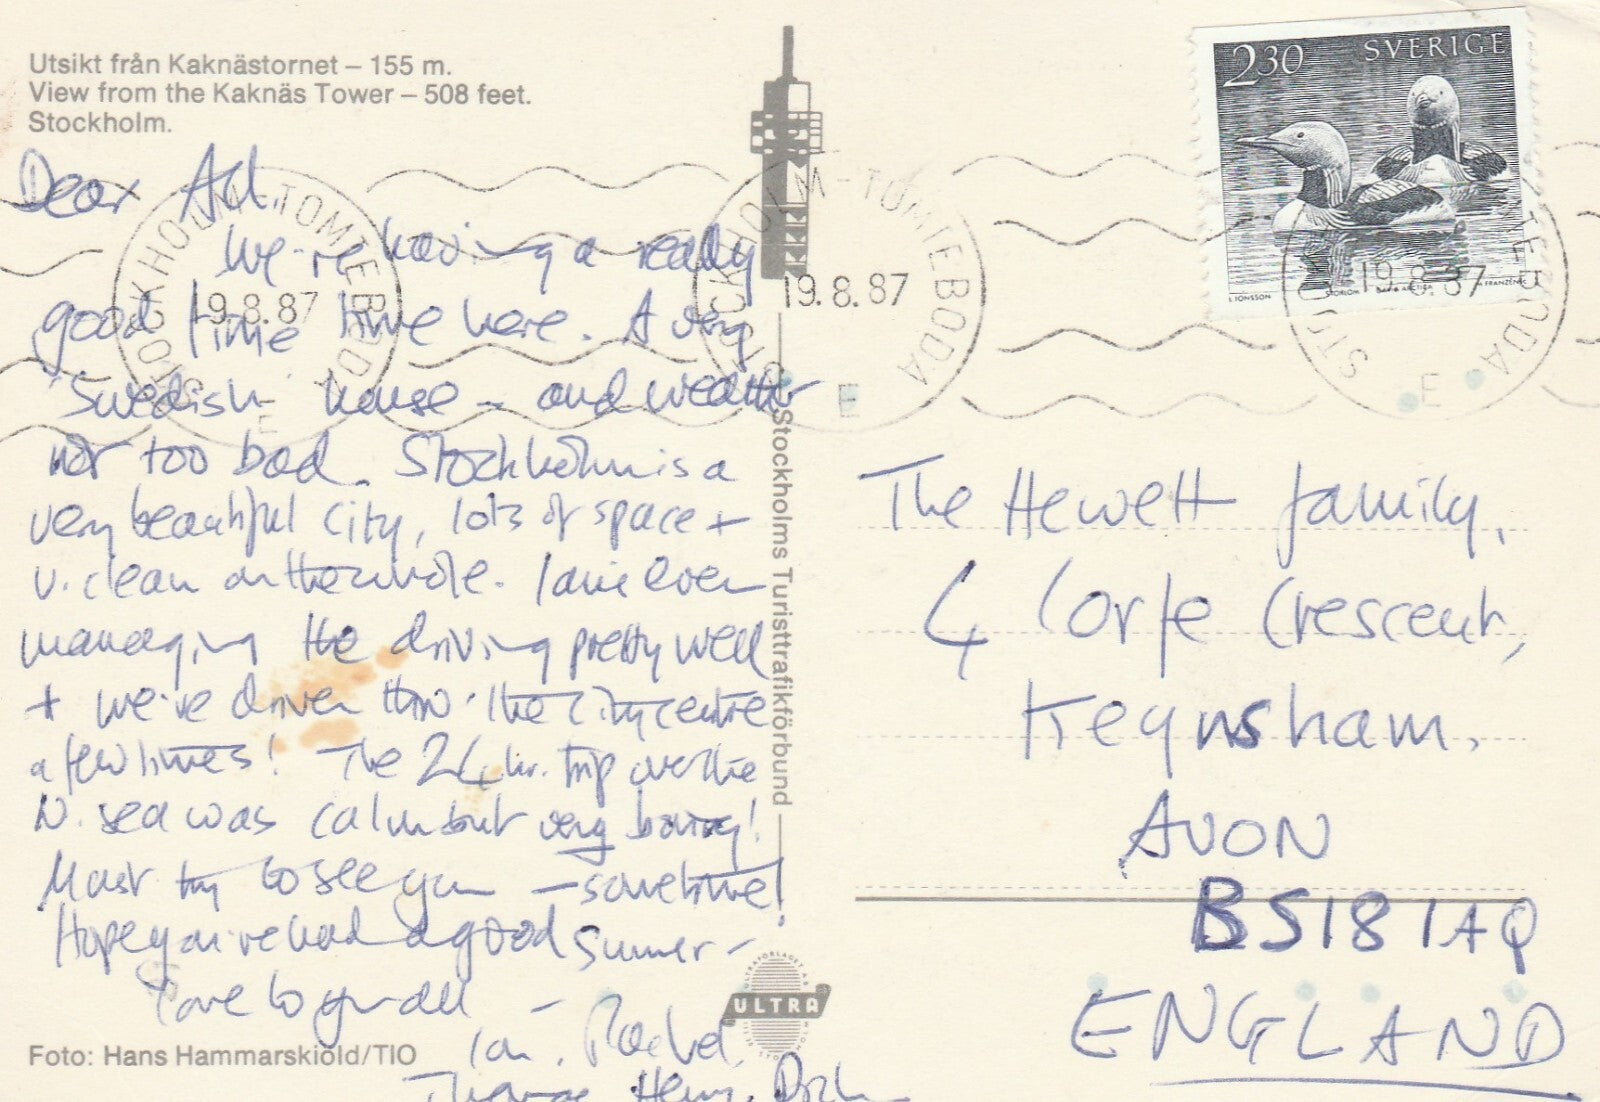 Utsikt från Kaknästornet – 155 m.
View from the Kaknäs Tower – 508 feet.
Stockholm.
Dear All,
We're having a really
good time here. A very
'Swedish' house – and weather
not too bad. Stockholm is a
very beautiful city, lots of space +
v. clean on the whole. Ian even
managing the driving pretty well
+ we've driven thro' the city centre
a few times! The 24 hr. trip over the
N. sea was calm but very boring!
Must try to see you – sometime!
Hope you've had a good summer –
Love to you all –
Ian, Rachel,
Thomas, Henry,
Foto: Hans Hammarskiöld/TIO
Stockholms Turisttrafikförbund
ULTRA
2 30 SVERIGE
L JONSSON
STORLOM GAVIA ARCTICA
FRANZÉN
STOCKHOLM-TOMTEBODA
19.8.87
E
STOCKHOLM-TOMTEBODA
19.8.87
E
STOCKHOLM-TOMTEBODA
19.8.87
E
The Hewett family,
4 Corfe Crescent,
Keynsham,
AVON
BS18 1AQ
ENGLAND